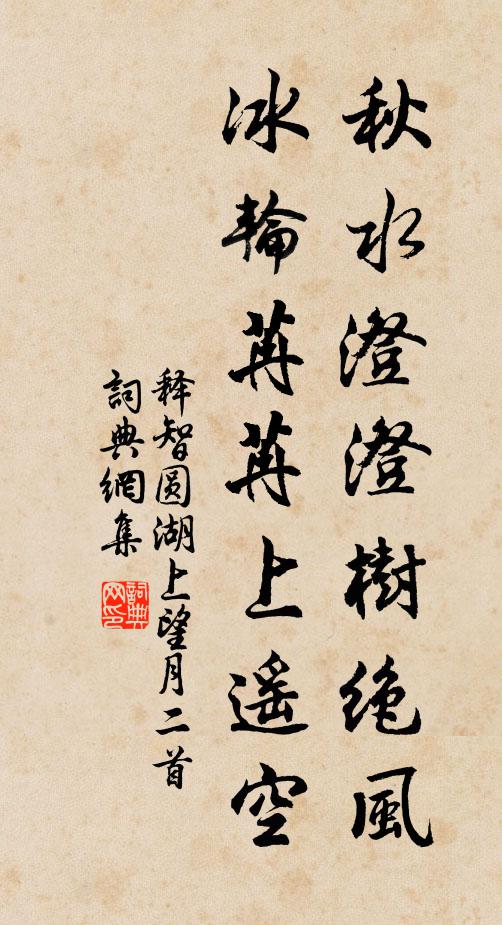 秋水澄澄樹绝風
冰輪苒苒上遥空
释智圆湖上望月二首
詞典網集
詞典網印